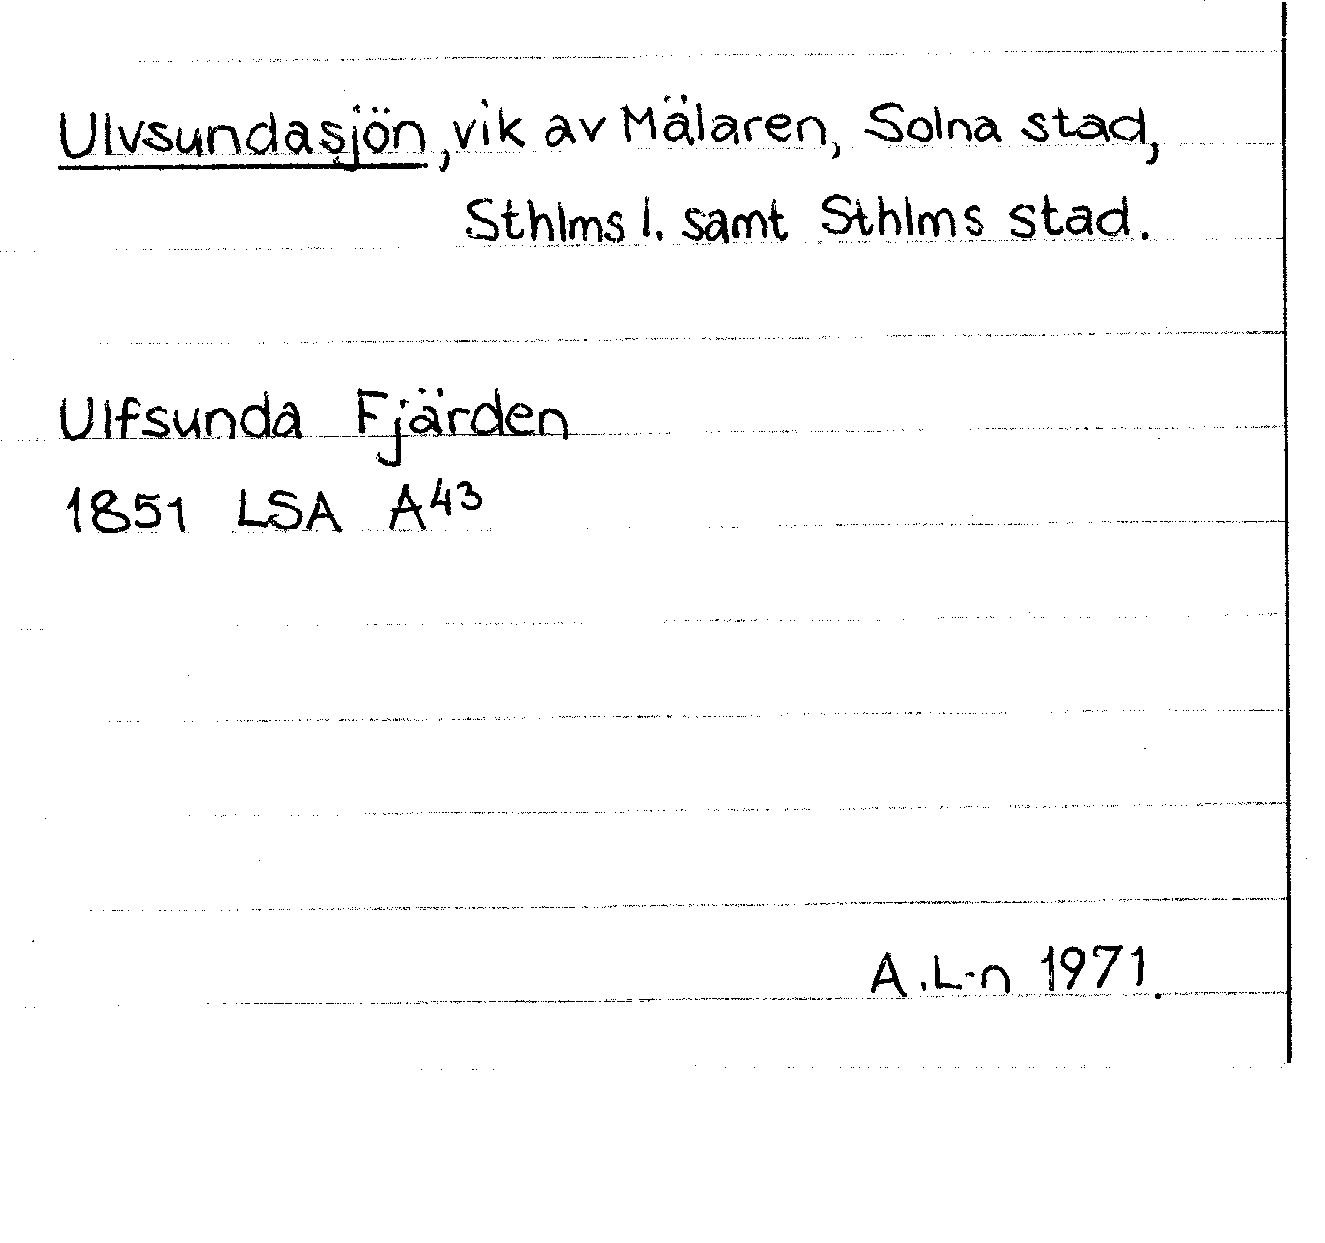 Ulvsundasjön, vik av Mälaren, Solna stad,
Sthlms l. samt Sthlms stad.
Ulfsunda Fjärden
1851 LSA A⁴³
A.L-n 1971.